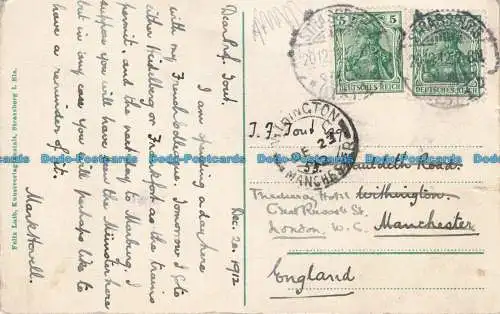 Dec. 20. 1912
Dear Prof. Tout.
I am spending a day here
with my French colleague. Tomorrow I go to
either Heidelberg or Frankfort as the trains
permit, and the next day to Marburg. I
suppose you will have seen the Münster here
but in any case you will perhaps like to
have a reminder of it.
Mark Hovell.
Felix Luib, Kunstverlagsanstalt, Strassburg i. Els.
STRASSBURG
20.12.12
5 5
DEUTSCHES REICH
DEUTSCHES REICH
WITHINGTON
DE 23
MANCHESTER
T. F. Tout Esq
Road.
Thackeray Hotel Withington.
Great Russell St.
London. W. C. Manchester
England
Books-Postcards